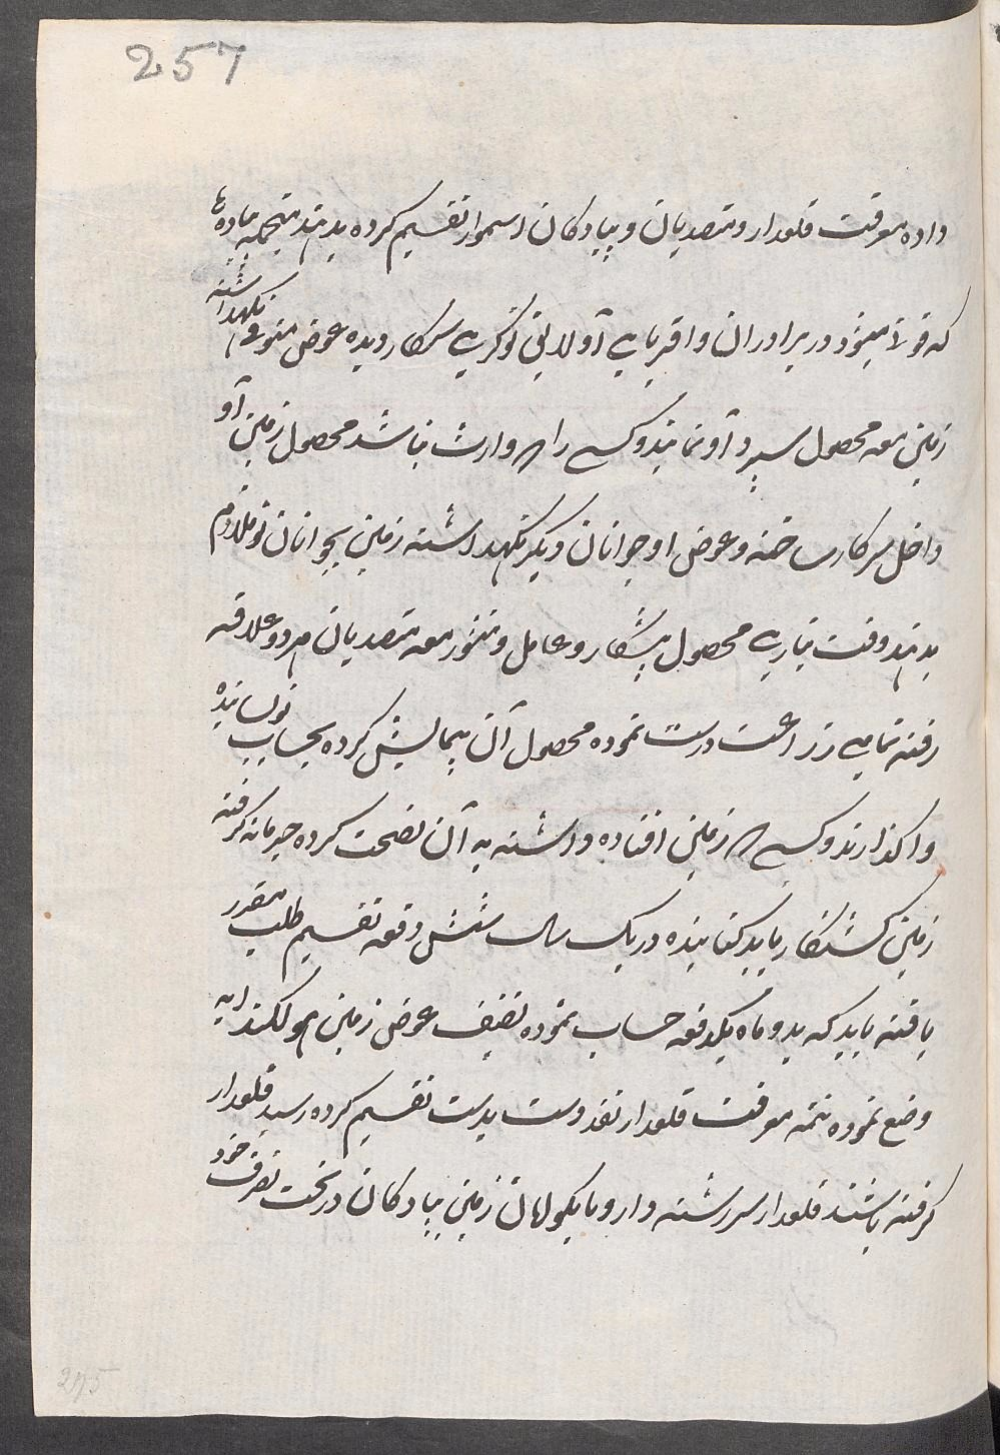 257
داده معرفت قلعدار و متصدیان و پیادکان اسموار تقسیم کرده بدهند پیاده‌ها
که فوت میشود در برادران و اقربای آو لایق نوکری سرکار دیده عوض متوفی نکهداشته
زمین معه محصول سپرد آو نمایند و کسی را که وارث نباشد محصول زمین آو
داخل سرکار ساخته و عوض او جوانان دیکر نکهداشته زمین بجوانان نو ملازم
بدهند وقت تیاری محصول پیشکار و عامل و معه متصدیان هر دو علاقه
رفته تمامی زراعت درست نموده محصول آن پیمایش کرده بحساب نویسانیده
واکذارند و کسی که زمین افتاده داشته به آن نصحت کرده جرمانه کرفته
زمین کشتکار باید کنانیده در یک سال شش دفعه تقسیم طلب مقرر
یافته باید که بدو ماه یکدفعه حساب نموده نصف عوض زمین
وضع نموده تتمه معرفت قلعدار نقد دست بدست تقسیم کرده رسید قلعدار
کرفته باشند قلعدار سررشته دار و نایکواران زمین پیادکان در تحت تصرف خود
275